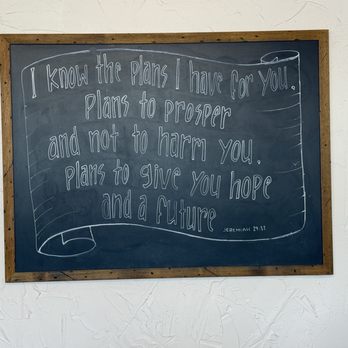 I know the plans I have for you.
Plans to prosper
and not to harm you.
Plans to give you hope
and a future
JEREMIAH 29:11